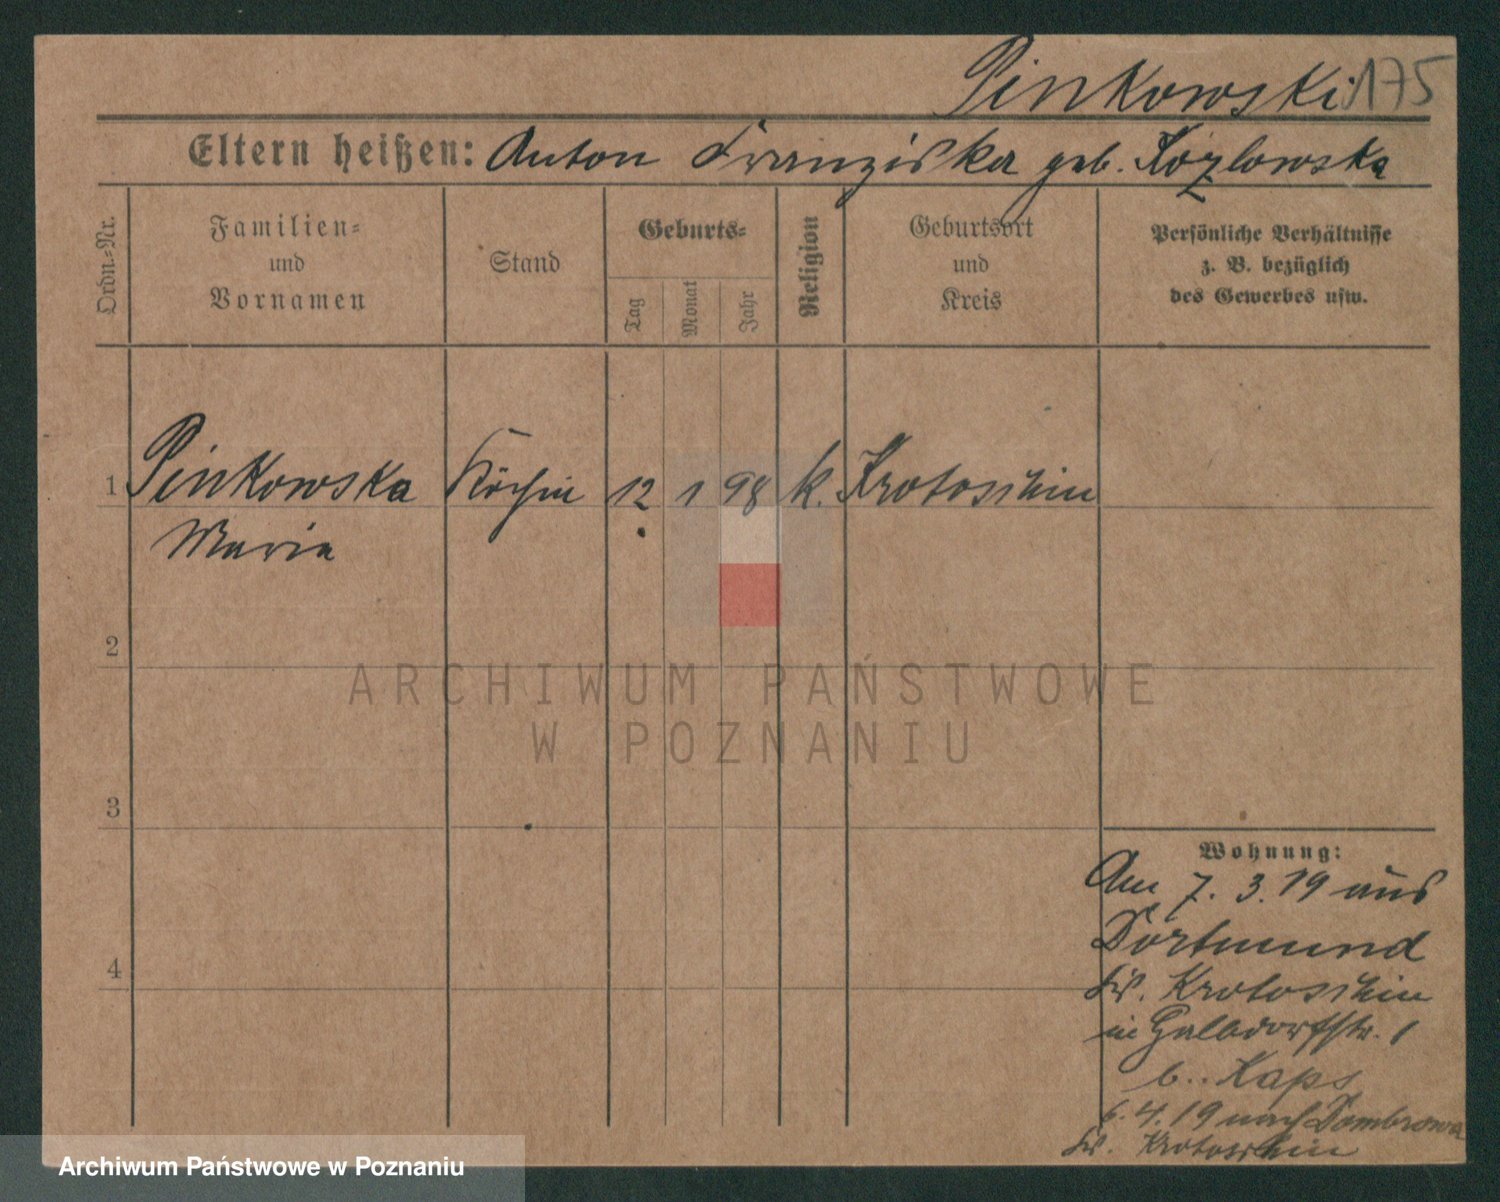 Pinkowski 175
Eltern heißen: Anton Franziska geb. Kozlowska
Ordn.-Nr.
Familien- und Vornamen
Stand
Geburts-
Tag
Monat
Jahr
Religion
Geburtsort und Kreis
Persönliche Verhältnisse
z. B. bezüglich
des Gewerbes usw.
1 Pinkowska Köchin 12 1 98 k. Krotoschin
Maria
2
ARCHIWUM PAŃSTWOWE
W POZNANIU
3
4
Wohnung:
Am 7. 3. 19 aus
Dortmund
Kr. Krotoschin
in 1
b. Kaps
6. 4. 19 nach Dombrowa
Kr. Krotoschin
Archiwum Państwowe w Poznaniu